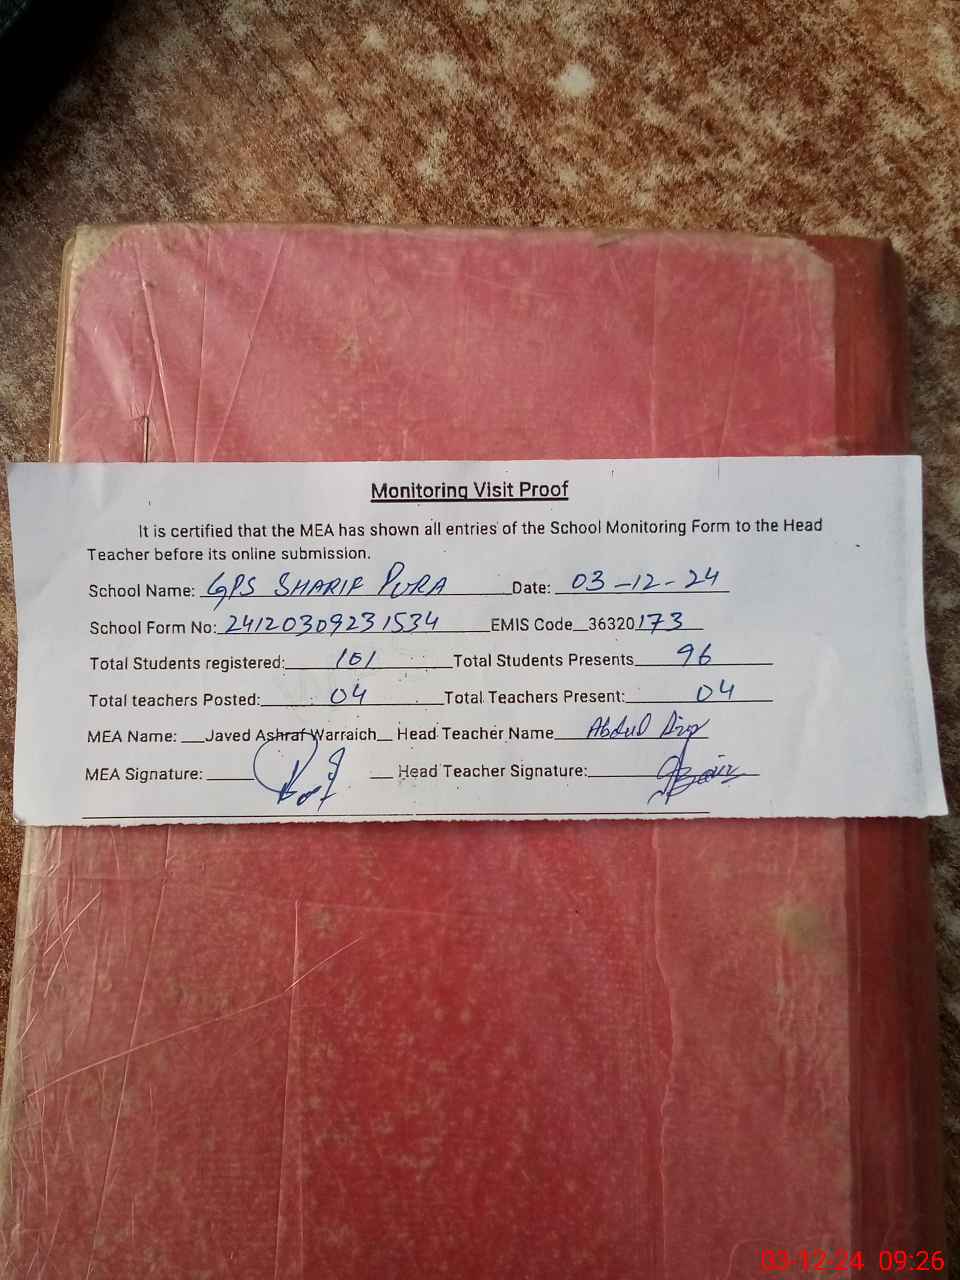 Monitoring Visit Proof
It is certified that the MEA has shown all entries of the School Monitoring Form to the Head
Teacher before its online submission.
School Name: GPS SHARIF PURA Date: 03-12-24
School Form No: 24120309231534 EMIS Code 36320173
Total Students registered: 101 Total Students Presents 96
Total teachers Posted: 04 Total Teachers Present: 04
MEA Name: Javed Ashraf Warraich Head Teacher Name Abdul
MEA Signature: Head Teacher Signature:
03-12-24 09:26